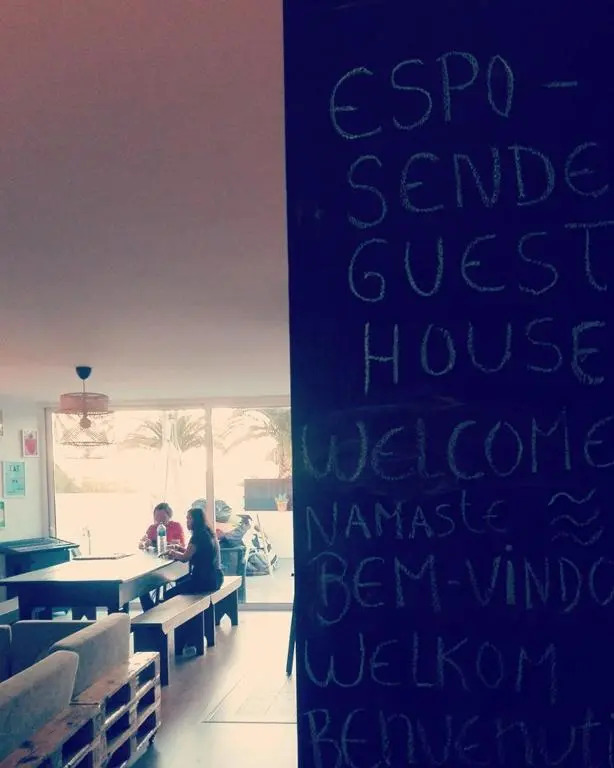 ESPO-
SENDE
GUEST
HOUSE
WELCOME
NAMASTE
BEM-VINDO
WELKOM
BENVENUTI